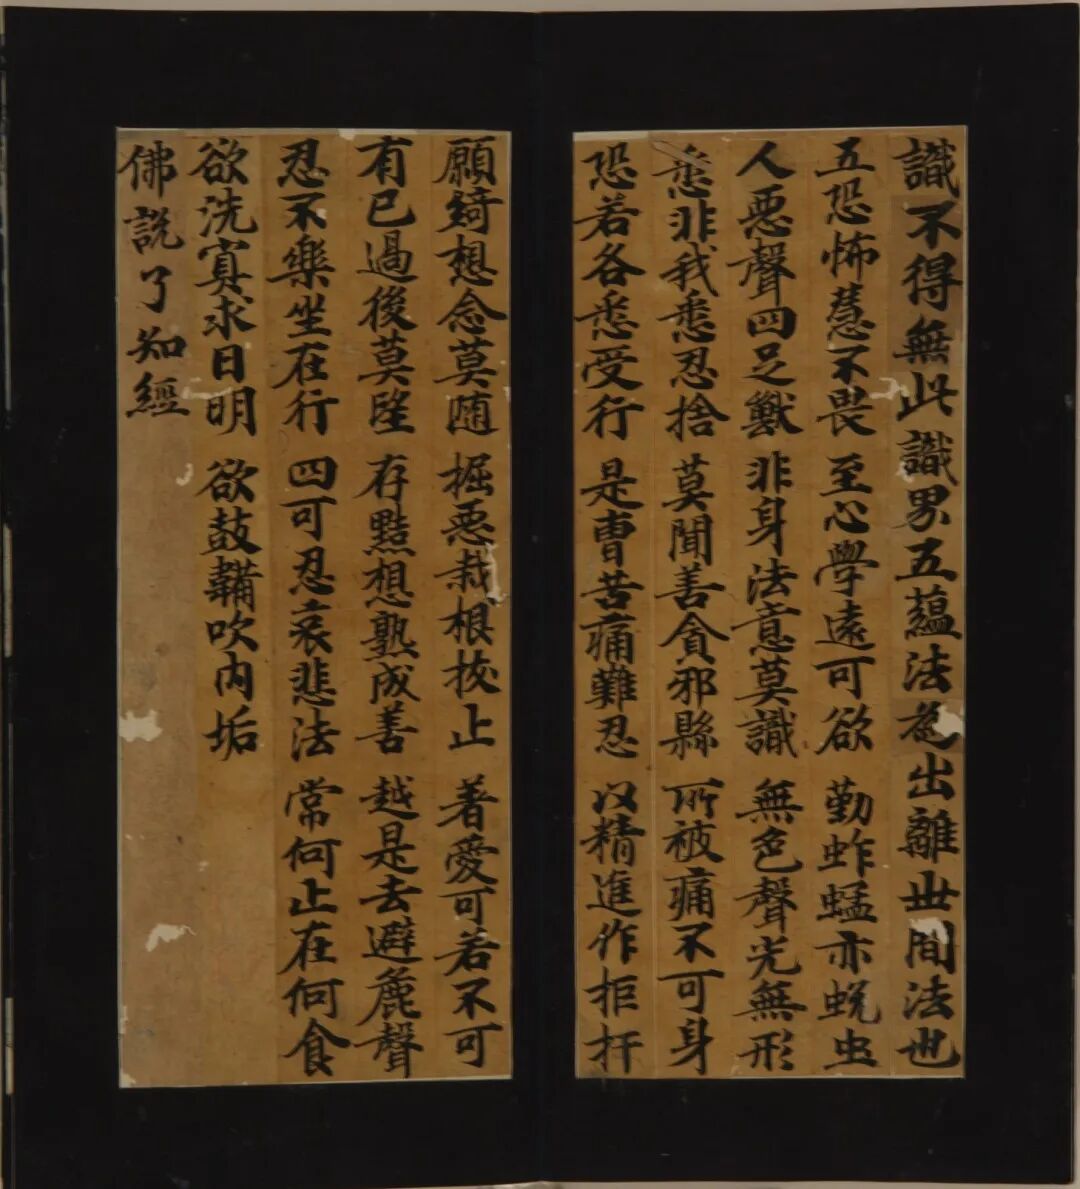 識不得無此識界五蘊法為出離世間法也
五恐怖慧不畏　至心學遠可欲　勤蚱蜢亦蜕虫
人惡聲四足獸　非身法意莫識　無色聲光無形
悉非我悉忍捨　莫聞善貪邪縣　所被痛不可身
恐若各悉受行　是曹苦痛難忍　以精進作拒扞
願綺想念莫随　掘惡栽根拔止　著愛可若不可
有已過後莫望　存黠想熟成善　越是去避麁聲
忍不樂坐在行　四可忍哀悲法　常何止在何食
欲洗冥求日明　欲鼓韛吹内垢
佛說了知經